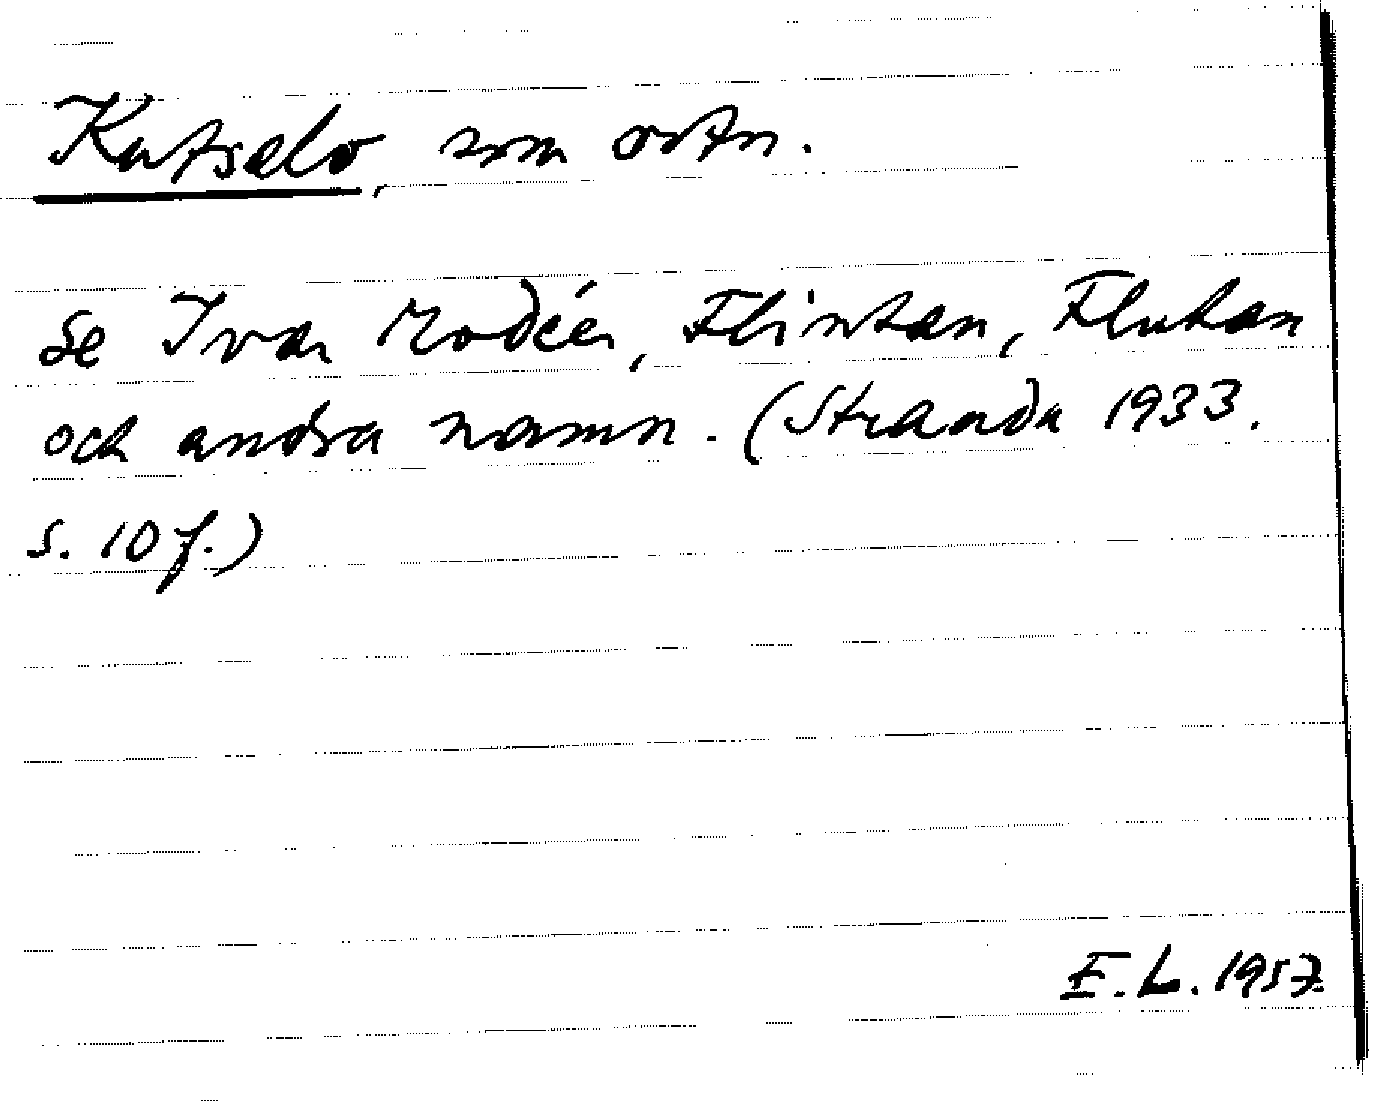 Kutselv, som ortn.
Se Ivar Modéer, Flintan, Flutan
och andra namn. (Stranda 1933.
s. 10 f.)
E.L. 1957.